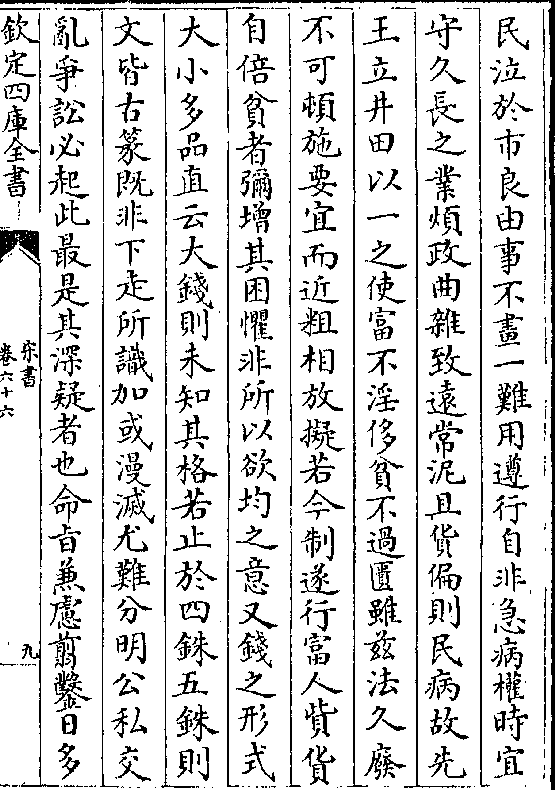 民泣於市良由事不畫一難用遵行自非急病權時宜
守久長之業煩政曲雜致遠常泥且貨偏則民病故先
王立井田以一之使富不淫侈貧不過匱雖茲法久廢
不可頓施要宜而近粗相放擬若今制遂行富人貲貨
自倍貧者彌增其困懼非所以欲均之意又錢之形式
大小多品直云大錢則未知其格若止於四銖五銖則
文皆古篆既非下走所識加或漫滅尤難分明公私交
亂爭訟必起此最是其深疑者也命旨兼慮翦鑿日多
欽定四庫全書
宋書
卷六十六
九